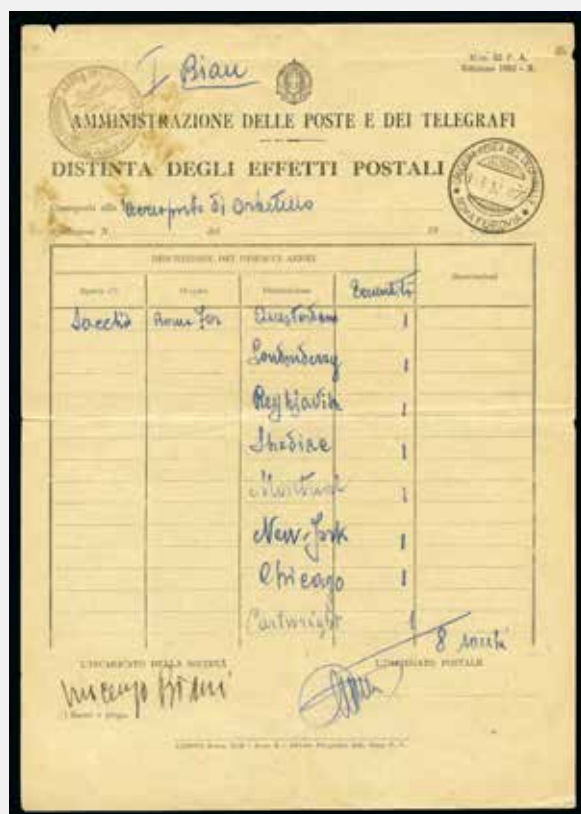 I Bian
Mod. 52 P. A.
Edizione 1932 - X.
AMMINISTRAZIONE DELLE POSTE E DEI TELEGRAFI
DISTINTA DEGLI EFFETTI POSTALI
Aeroporto di Orbetello
DESCRIZIONE DEI DISPACCI AEREI
Specie (1) Origine Destinazione Quantità Annotazioni
Sacchi Roma Fer Amsterdam 1
Londonderry 1
Reykjavik 1
Shediac 1
Montreal 1
New-York 1
Chicago 1
Cartwright 1
8 sacchi
L'INCARICATO DELLA SOCIETÀ L'IMPIEGATO POSTALE
(1) Sacco o piego.